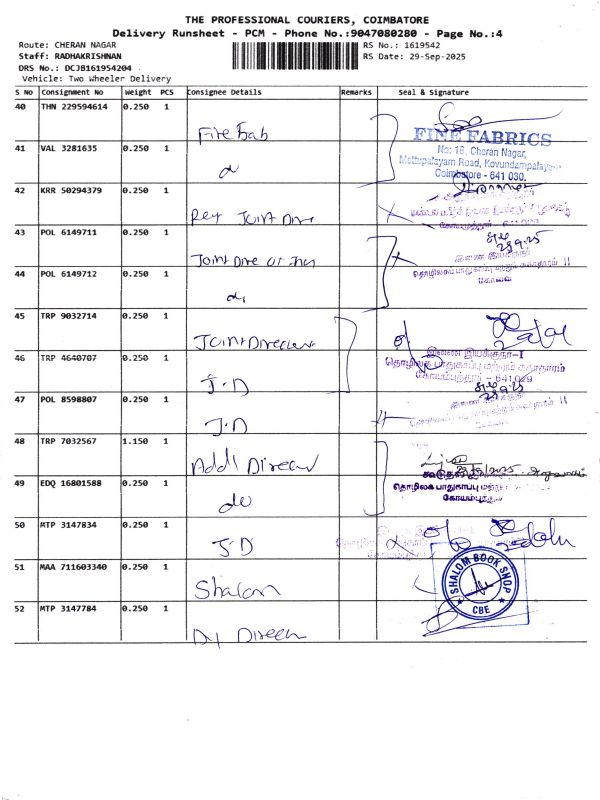 THE PROFESSIONAL COURIERS, COIMBATORE
Delivery Runsheet - PCM - Phone No.:9047080280 - Page No.:4
Route: CHERAN NAGAR
RS No.: 1619542
Staff: RADHAKRISHNAN
RS Date: 29-Sep-2025
DRS No.: DCJB161954204
Vehicle: Two Wheeler Delivery
S No Consignment No Weight PCS Consignee Details Remarks Seal & Signature
40 THN 229594614 0.250 1
FINE FABRICS
No: 16, Cheran Nagar,
Mettupalayam Road, Kovundampalayam
Coimbatore - 641 030.
41 VAL 3281635 0.250 1
do
42 KRR 50294379 0.250 1
Joint Dire
43 POL 6149711 0.250 1
Joint Dire
29.9.25
44 POL 6149712 0.250 1
தொழிலகப் பாதுகாப்பு மற்றும் சுகாதாரம் II
கோவை
45 TRP 9032714 0.250 1
Joint Director
46 TRP 4640707 0.250 1
J.D
இணை இயக்குநர்-I
தொழிலகப் பாதுகாப்பு மற்றும் சுகாதாரம்
கோயம்புத்தூர் - 641029
29.9.25
47 POL 8598807 0.250 1
J.D
48 TRP 7032567 1.150 1
Addl Direcor
49 EDQ 16801588 0.250 1
do
தொழிலக பாதுகாப்பு மற்றும்
கோயம்புத்தூ
50 MTP 3147834 0.250 1
J.D
51 MAA 711603340 0.250 1
Shalom
SHALOM BOOK SHOP
CBE
52 MTP 3147784 0.250 1
Dy Direcor